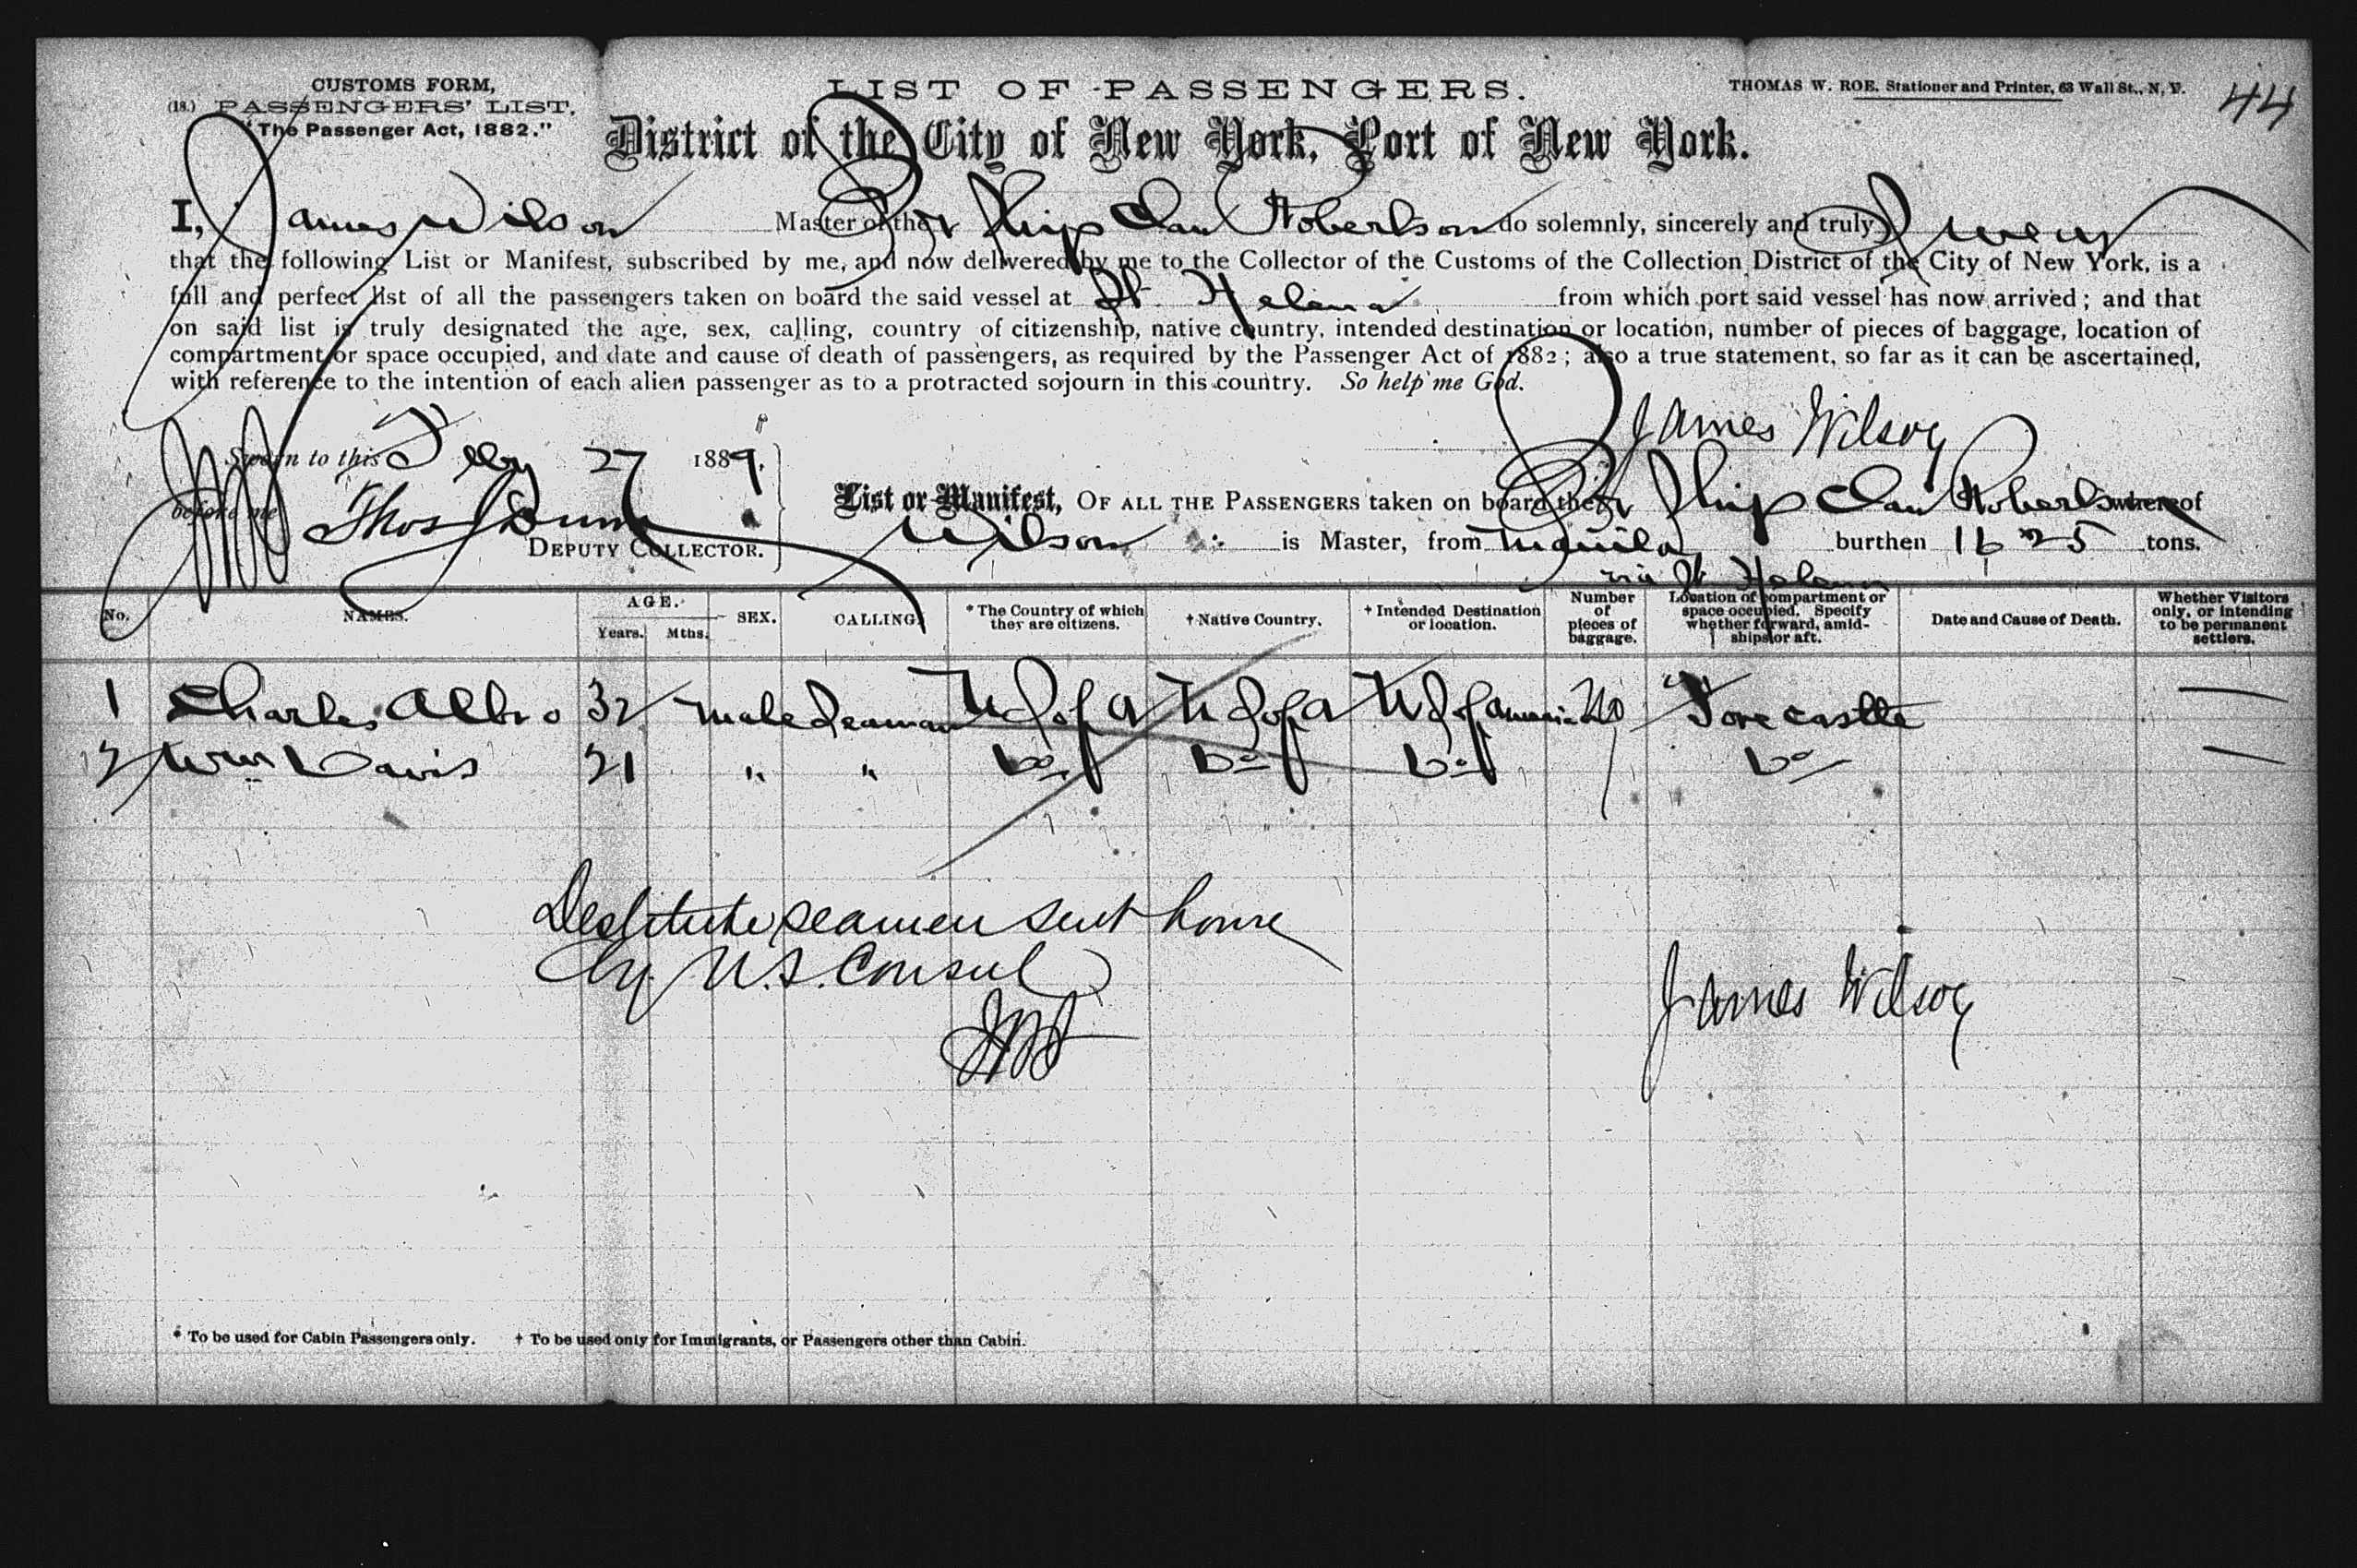 CUSTOMS FORM,
(18.) PASSENGERS' LIST.
"The Passenger Act, 1882."
LIST OF PASSENGERS.
THOMAS W. ROE, Stationer and Printer, 63 Wall St., N. Y.
44
District of the City of New York, Port of New York.
I, James Wilson Master of the Br Ship Clan Robertson do solemnly, sincerely and truly Swear
that the following List or Manifest, subscribed by me, and now delivered by me to the Collector of the Customs of the Collection District of the City of New York, is a
full and perfect list of all the passengers taken on board the said vessel at St. Helena from which port said vessel has now arrived; and that
on said list is truly designated the age, sex, calling, country of citizenship, native country, intended destination or location, number of pieces of baggage, location of
compartment or space occupied, and date and cause of death of passengers, as required by the Passenger Act of 1882; also a true statement, so far as it can be ascertained,
with reference to the intention of each alien passenger as to a protracted sojourn in this country. So help me God.
James Wilson
Sworn to this Feby 27 1889.
before me Thos Dunn
DEPUTY COLLECTOR.
List or Manifest, OF ALL THE PASSENGERS taken on board the Br Ship Clan Robertson whereof
Wilson is Master, from Manila burthen 1625 tons.
via St Helena
No. NAMES. AGE. Years. Mths. SEX. CALLING. * The Country of which they are citizens. † Native Country. † Intended Destination or location. Number of pieces of baggage. Location of compartment or space occupied. Specify whether forward, amidships or aft. Date and Cause of Death. Whether Visitors only, or intending to be permanent settlers.
1 Charles Albro 32 male Seaman U S of A U S of A U S of America No Forecastle —
2 Wm Davis 21 " " Do Do Do Do —
Destitute seamen sent home
by U.S. Consul
James Wilson
* To be used for Cabin Passengers only. † To be used only for Immigrants, or Passengers other than Cabin.